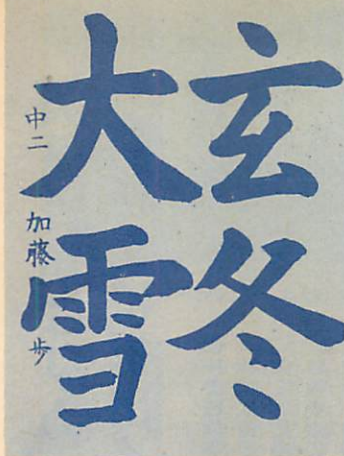 玄冬
大雪
中二 加藤 歩